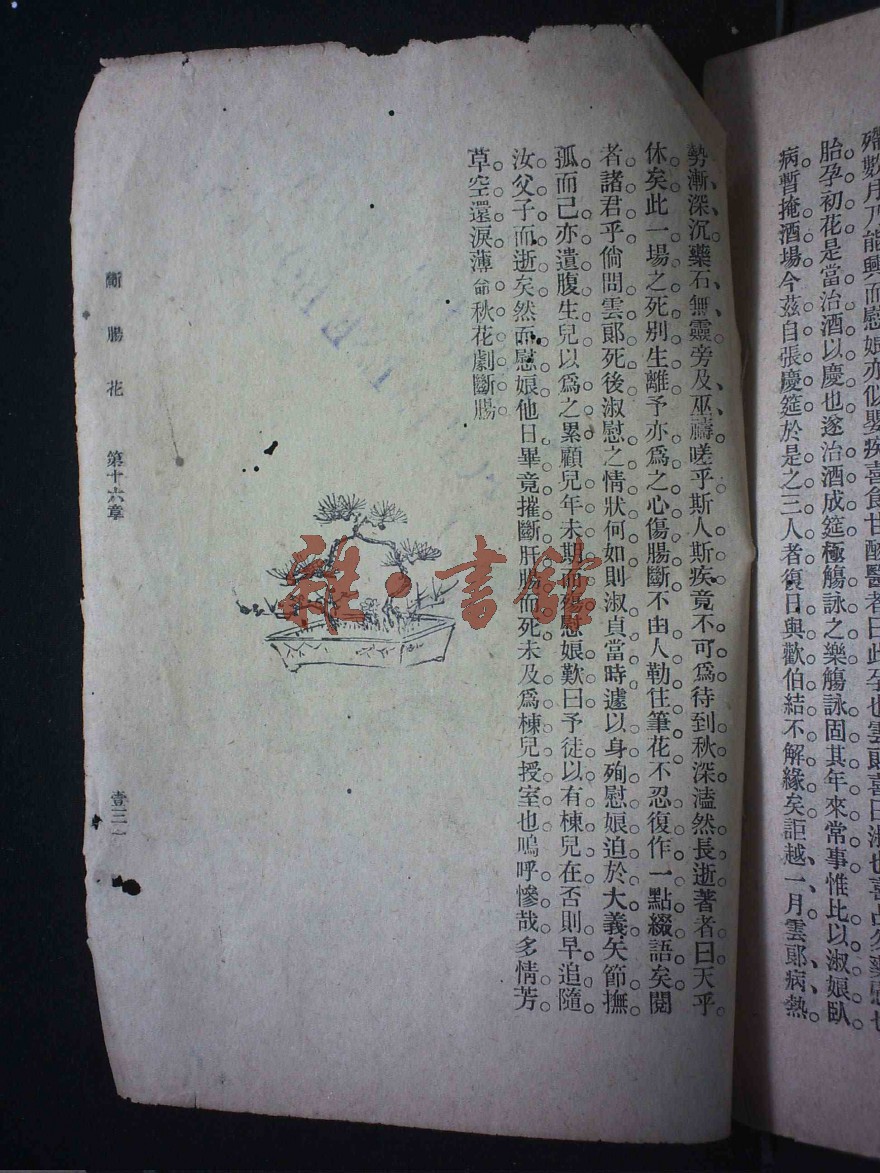 殢數月乃能興而慰娘亦似嬰疾喜食甘醲醫者曰此孕也雲郎喜曰淑也喜占
胎孕初花是當治酒以慶也遂治酒成筵極觴詠之樂觴詠固其年來常事惟比以淑娘臥
病暫掩酒場今茲自張慶筵於是之三人者復日與歡伯結不解緣矣詎越一月雲郎病熱
勢漸深沉藥石無靈旁及巫禱嗟乎斯人斯疾竟不可爲待到秋深溘然長逝著者曰天乎
休矣此一場之死別生離予亦爲之心傷腸斷不由人勒住筆花不忍復作一點綴語矣閱
者諸君乎倘問雲郎死後淑慰之情狀何如則淑貞當時遽以身殉慰娘迫於大義矢節撫
孤而己亦遺腹生兒以爲之累顧兒年未期而殤慰娘歎曰予徒以有棟兒在否則早追隨
汝父子而逝矣然而慰娘他日畢竟摧斷肝腸而死未及爲棟兒授室也嗚呼慘哉多情芳
草空還淚薄命秋花劇斷腸
斷腸花 第十六章 壹三一
雜·書館